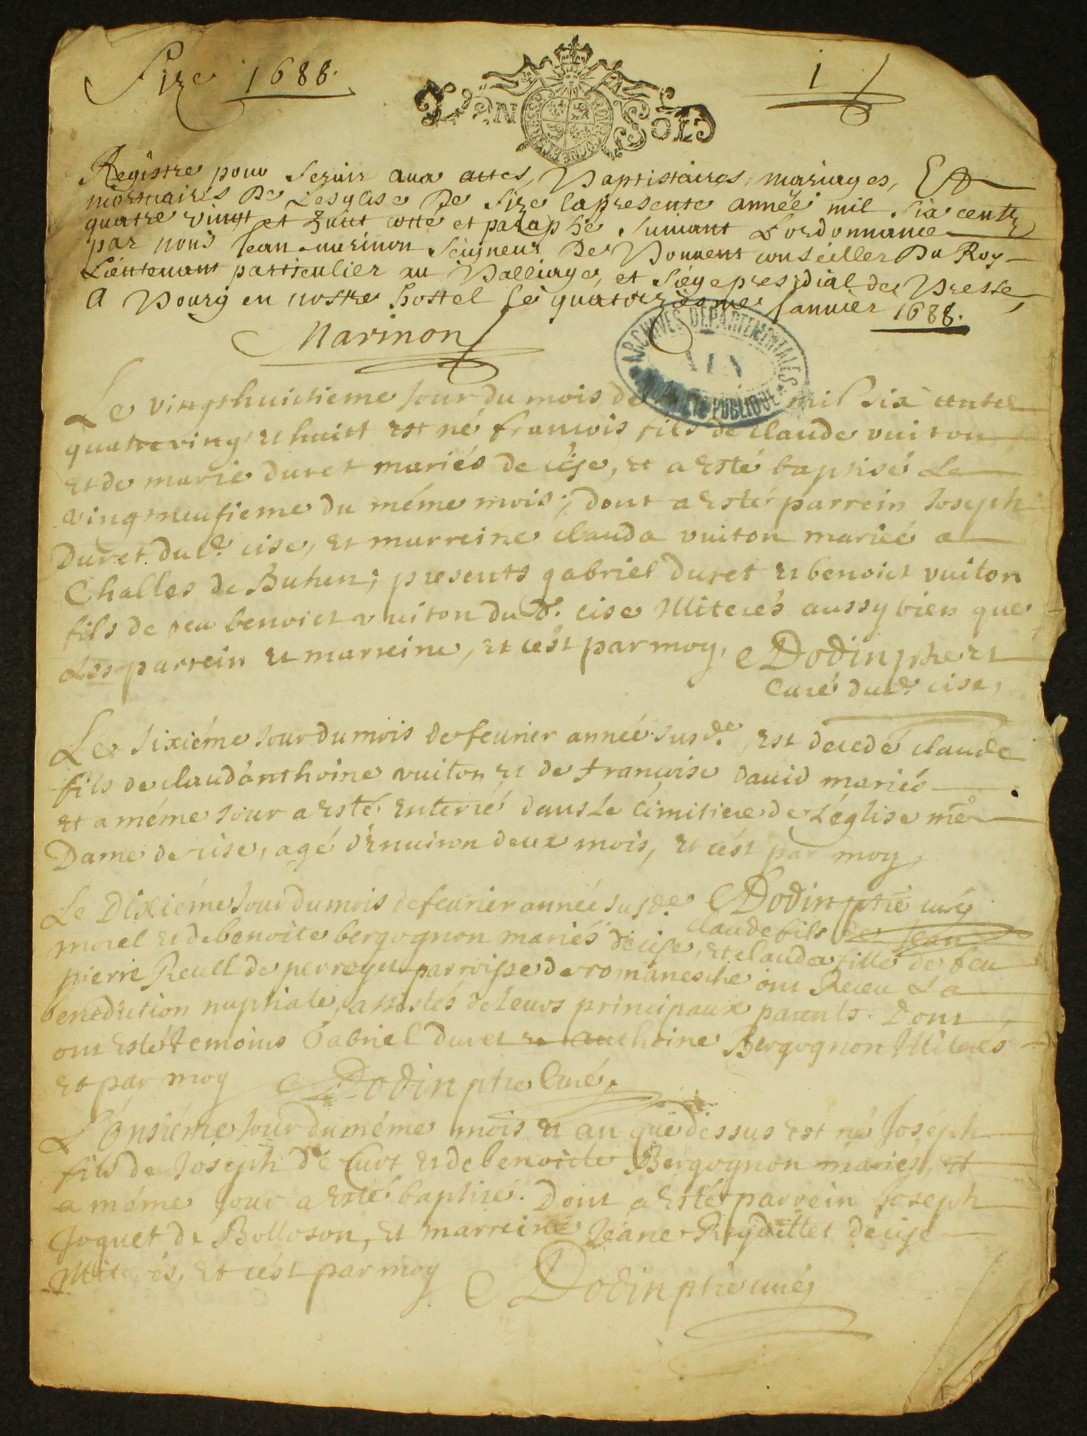 Size 1688.
1
UN SOLD
Registre pour Servir aux actes, Baptistaires, mariages, Et
mortuaires De Lesglise De Size la presente année mil Six centz
quatre vingt et huict cotté et paraphé Suivant L'ordonnance
par nous Jean marinon Seigneur De Bonnent conseiller Du Roy
Lieutenant particulier au Balliage, et Siege presidial de Bresse
A Bourg en nostre hostel le quatorzieme Janvier 1688.
Marinon
ARCHIVES DÉPARTEMENTALES
AIN
PUBLIQUE
Le vingthuictieme Jour du mois de mil six centz
quatreving et huict est né francois fils de Claude vuiton
et de marie duret mariés de cise, et a esté baptisé Le
vingtneufieme du méme mois; dont a esté parrein Joseph
Duret dud. cise, et marreine clauda vuiton mariée a
Challes de Buhen; presents gabriel duret et benoict vuiton
fils de feu benoict vuiton dud. cise illiterés aussy bien que
Les parrein et marreine, et c'est par moy, Dodin ptre et
Curé dud. cise,
Le sixiéme Jour du mois de feurier année susde, est decedé claude
fils de claudanthoine vuiton et de francoise david mariés
et a méme Jour a esté enterré dans Le cimitiere de L'église nre
Dame de cise, agé d'enuiron deux mois, et c'est par moy,
Dodin ptre curé
Le Dixiéme Jour du mois de feurier année susde claude fils de Jean
morel et de benoite bergognon mariés de cise, et clauda fille de feu
pierre Reull de perroyet parroisse de romanesche ont Receu La
benediction nuptiale, assistés de Leurs principaux parents. Dont
ont esté temoins Gabriel duret et anthoine Bergognon illiterés
et par moy Dodin ptre Curé.
L'onsiéme Jour du méme mois et an que dessus est né Joseph
fils de Joseph de Curt et de benoicte Bergognon mariés, et
a méme Jour a esté baptisé. Dont a esté parrein Joseph
Joquet de Bolloson, et marreine Jeane Reydellet de cise
illiterés, et c'est par moy Dodin ptre curé